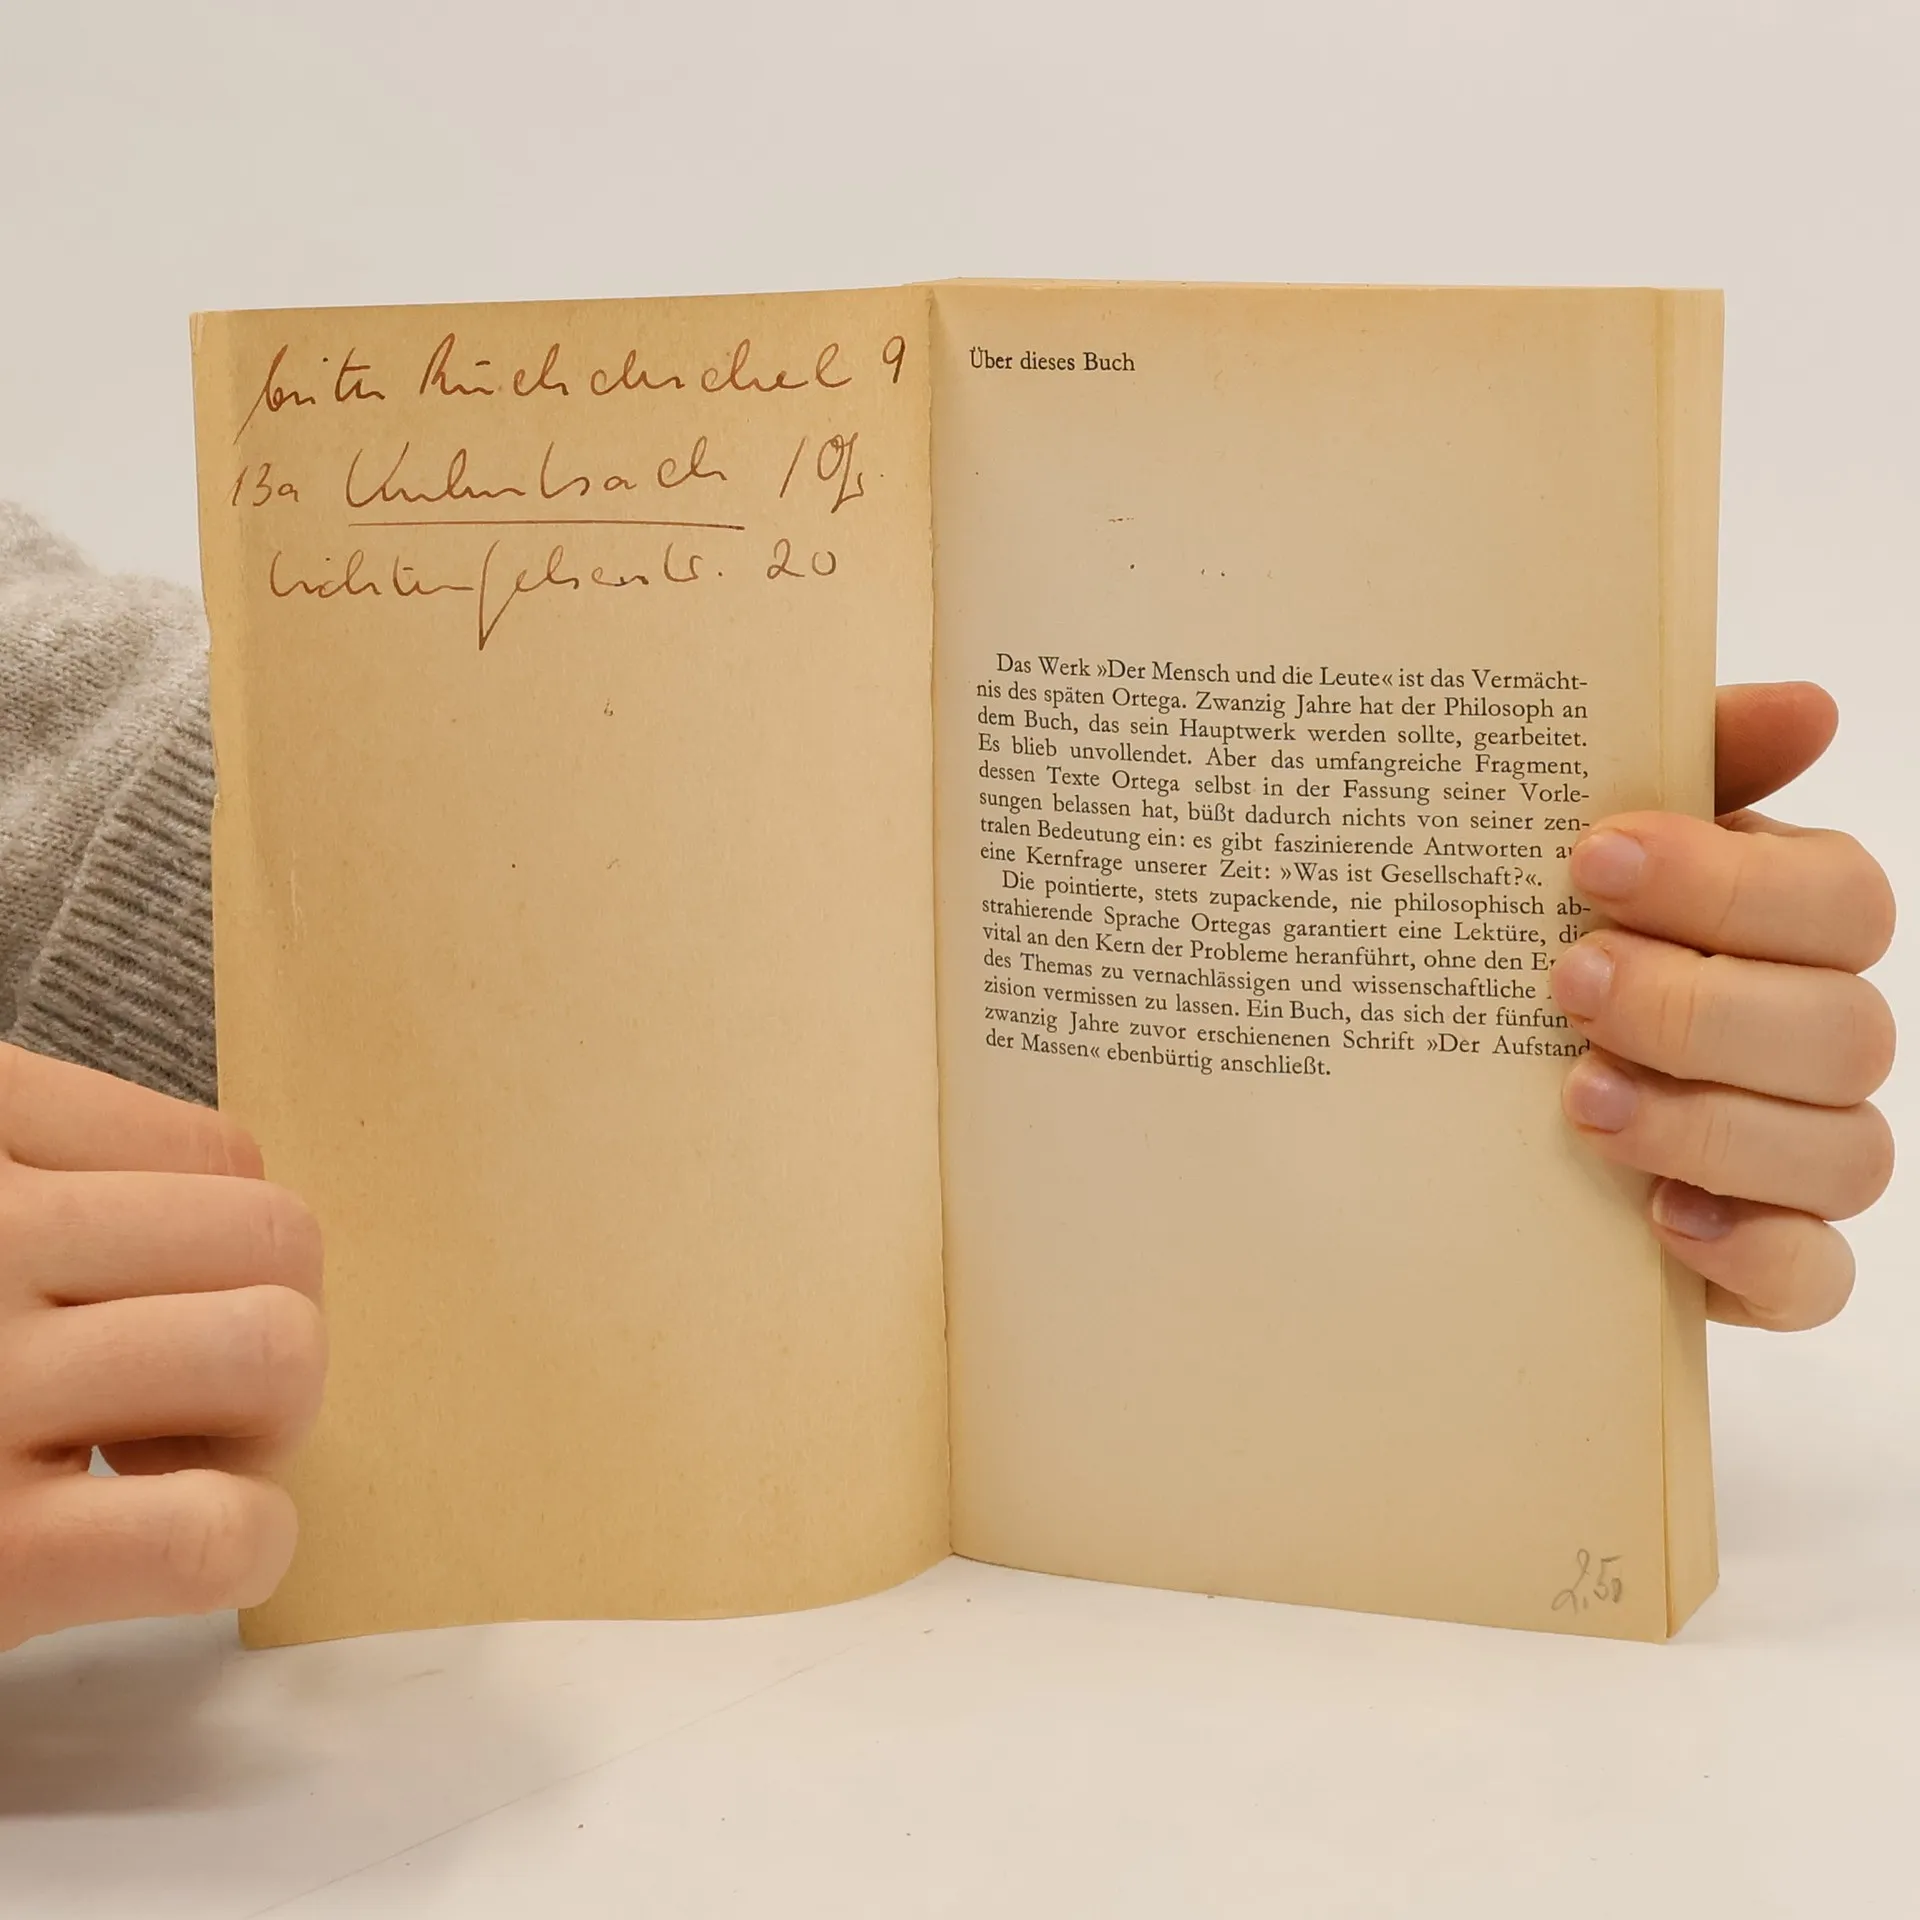 9
13a Kulmbach
Lichtenfelserstr. 20
Über dieses Buch
Das Werk »Der Mensch und die Leute« ist das Vermächt-
nis des späten Ortega. Zwanzig Jahre hat der Philosoph an
dem Buch, das sein Hauptwerk werden sollte, gearbeitet.
Es blieb unvollendet. Aber das umfangreiche Fragment,
dessen Texte Ortega selbst in der Fassung seiner Vorle-
sungen belassen hat, büßt dadurch nichts von seiner zen-
tralen Bedeutung ein: es gibt faszinierende Antworten
eine Kernfrage unserer Zeit: »Was ist Gesellschaft?«.
Die pointierte, stets zupackende, nie philosophisch ab-
strahierende Sprache Ortegas garantiert eine Lektüre, die
vital an den Kern der Probleme heranführt, ohne den
des Themas zu vernachlässigen und wissenschaftliche
zision vermissen zu lassen. Ein Buch, das sich der
zwanzig Jahre zuvor erschienenen Schrift »Der Aufstand
der Massen« ebenbürtig anschließt.
2,50